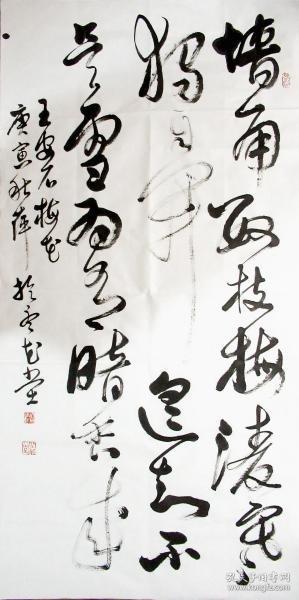 墙角数枝梅凌寒
独自开遥知不
是雪为有暗香来
王安石梅花
庚寅秋萍於雪花堂
孔夫子旧书网